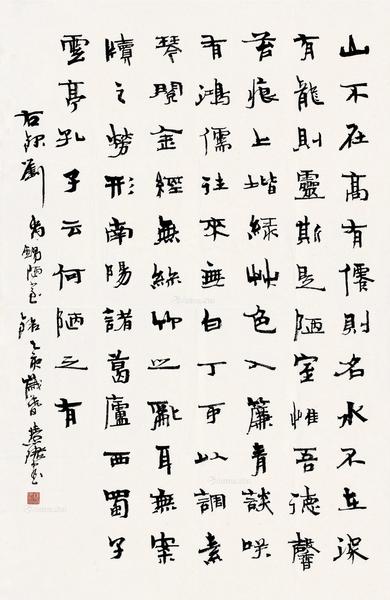 山不在高有僊則名水不在深
有龍則靈斯是陋室惟吾德馨
苔痕上堦綠艸色入簾青談咲
有鴻儒往來無白丁可以調素
琴閱金經無絲竹之亂耳無案
牘之勞形南陽諸葛廬西蜀子
雲亭孔子云何陋之有
右録劉禹錫陋室銘乙亥歲